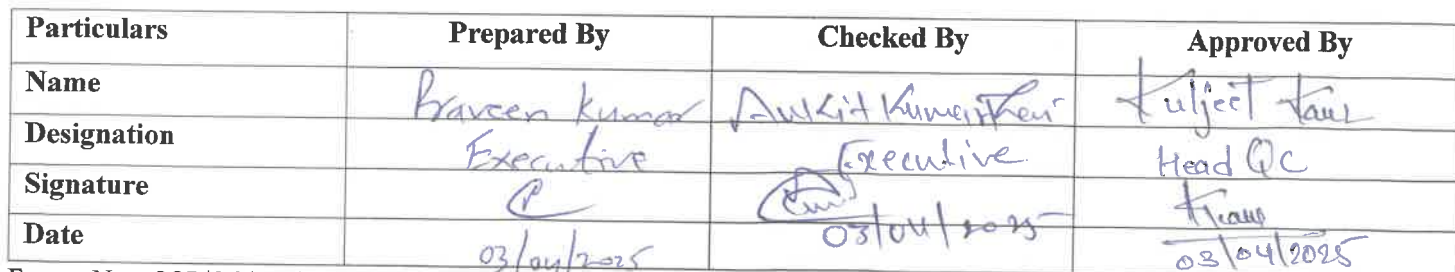 Particulars Prepared By Checked By Approved By
Name Praveen Kumar Ankit Kumar Kuljeet Kaur
Designation Executive Executive Head QC
Signature
Date 03/04/2025 03/04/2025 03/04/2025